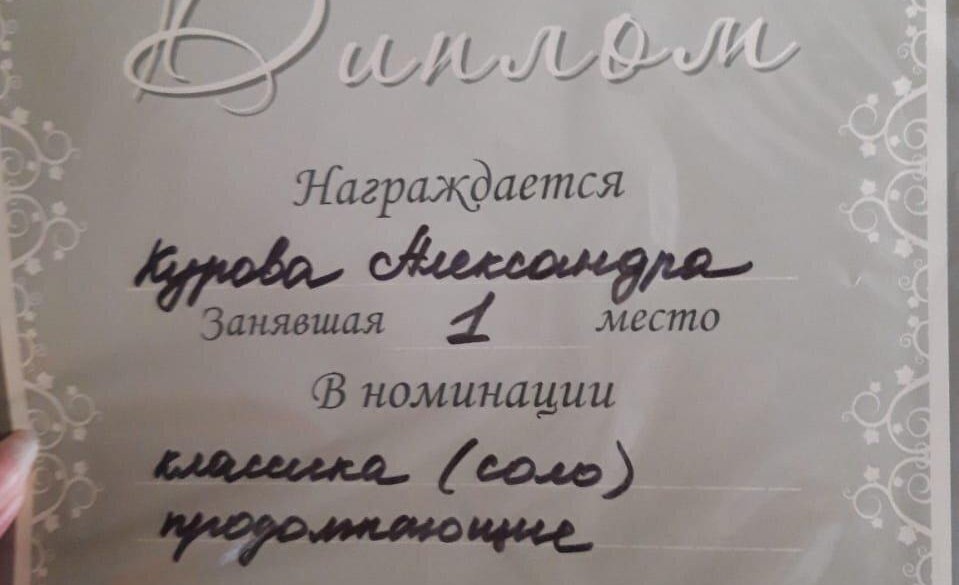 Диплом
Награждается
Курова Александра
Занявшая 1 место
В номинации
классика (соло)
продолжающие